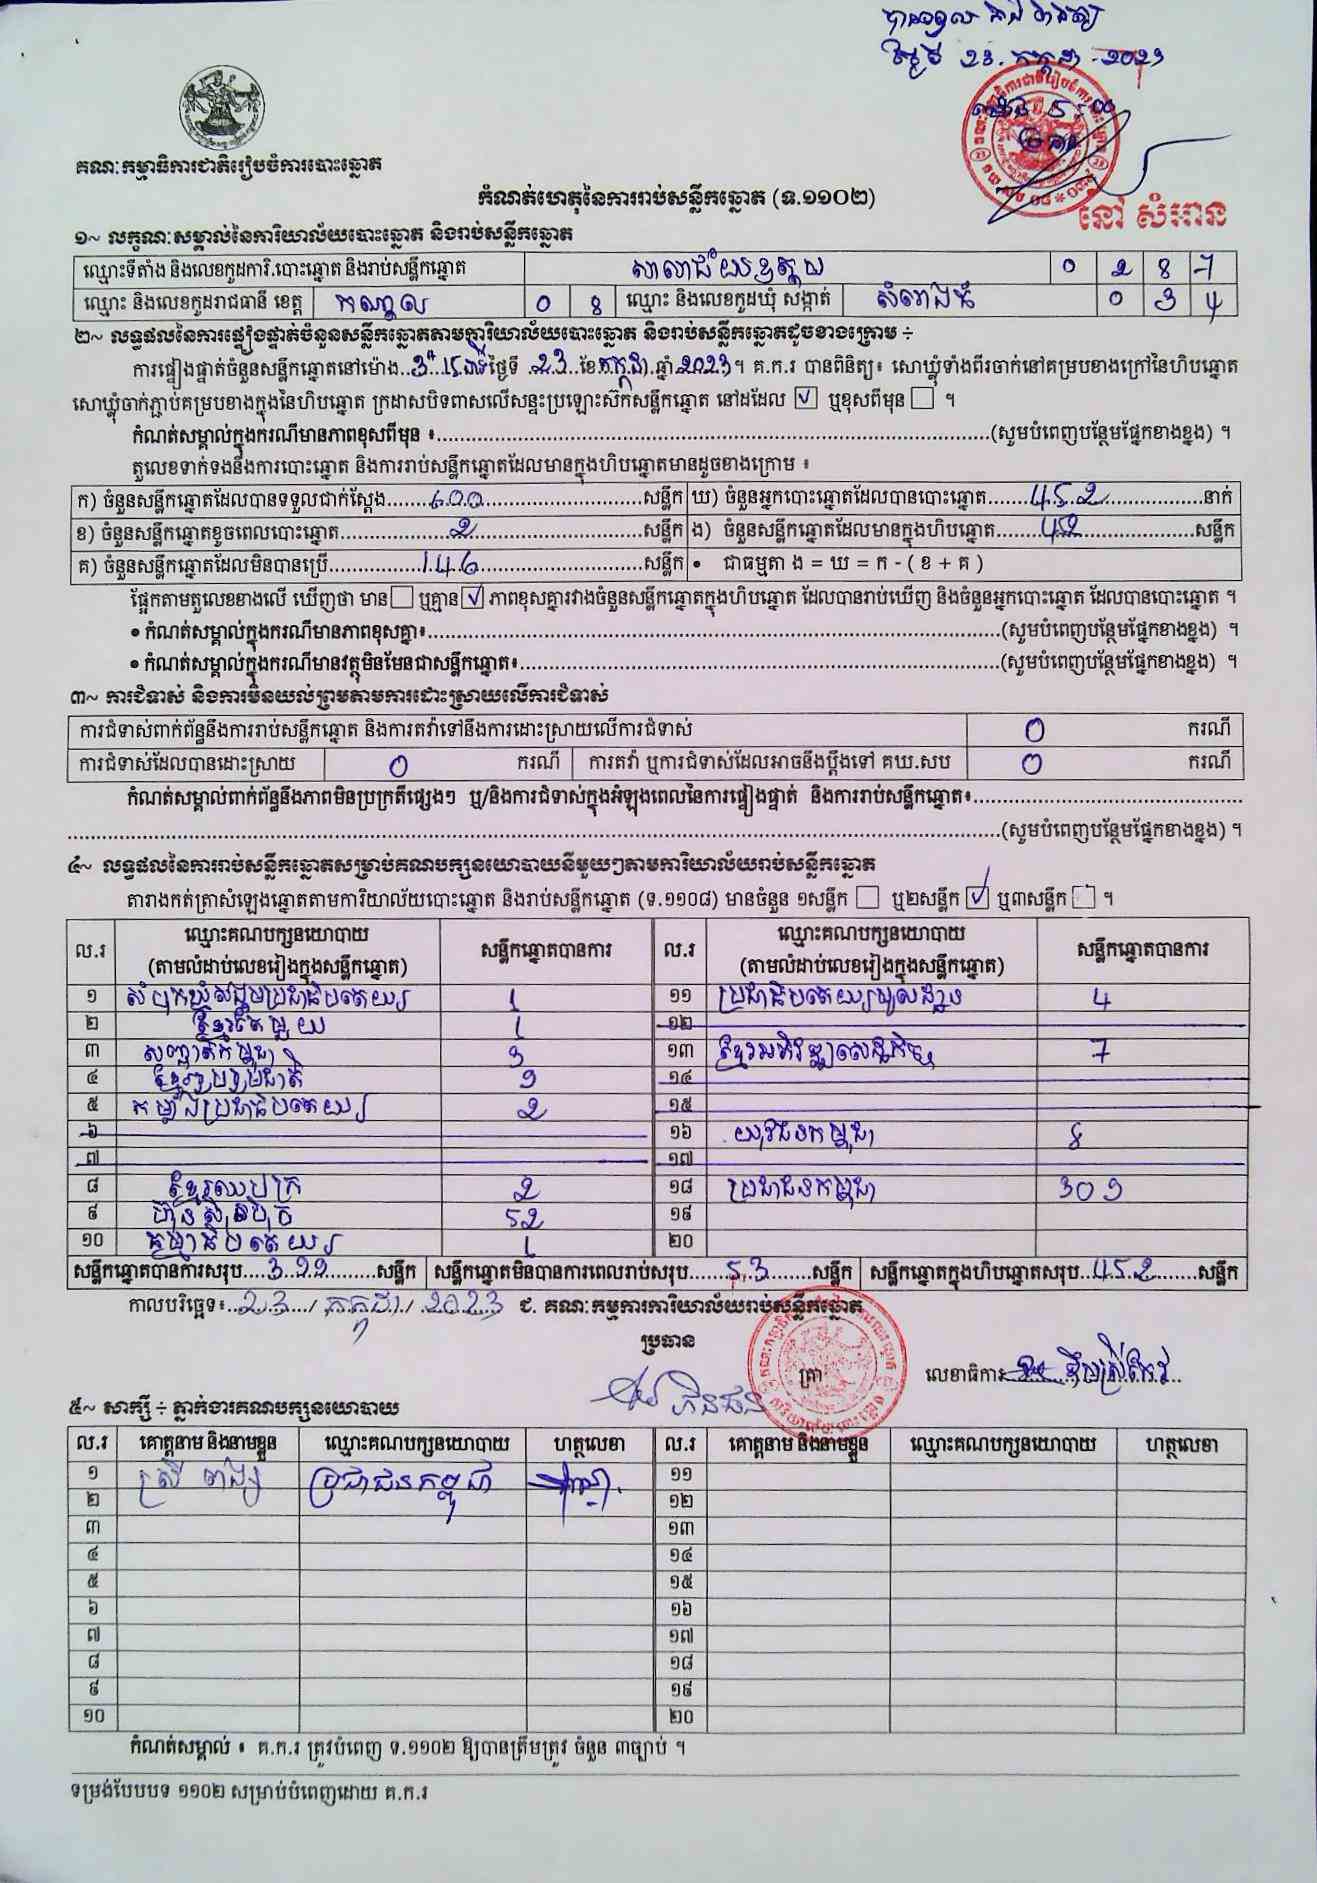 ថ្ងៃទី 23. កក្កដា. 2023
គណៈកម្មាធិការជាតិរៀបចំការបោះឆ្នោត
កំណត់ហេតុនៃការរាប់សន្លឹកឆ្នោត (ទ.១១០២)
នៅ សំអាន
១~ លក្ខណៈសម្គាល់នៃការិយាល័យបោះឆ្នោត និងរាប់សន្លឹកឆ្នោត
ឈ្មោះទីតាំង និងលេខកូដការិ.បោះឆ្នោត និងរាប់សន្លឹកឆ្នោត 0 2 8 7
ឈ្មោះ និងលេខកូដរាជធានី ខេត្ត កណ្តាល 0 8 ឈ្មោះ និងលេខកូដឃុំ សង្កាត់ 0 3 4
២~ លទ្ធផលនៃការផ្ទៀងផ្ទាត់ចំនួនសន្លឹកឆ្នោតតាមការិយាល័យបោះឆ្នោត និងរាប់សន្លឹកឆ្នោតដូចខាងក្រោម ÷
ការផ្ទៀងផ្ទាត់ចំនួនសន្លឹកឆ្នោតនៅម៉ោង..3 15 នាទី ថ្ងៃទី .23..ខែ.កក្កដា.ឆ្នាំ 2023។ គ.ក.រ បានពិនិត្យ៖ សោឃ្លុំទាំងពីរចាក់នៅគម្របខាងក្រៅនៃហិបឆ្នោត
សោឃ្លុំចាក់ភ្ជាប់គម្របខាងក្នុងនៃហិបឆ្នោត ក្រដាសបិទពាសលើសន្ទះប្រឡោះស៊កសន្លឹកឆ្នោត នៅដដែល ☑ ឬខុសពីមុន ☐ ។
កំណត់សម្គាល់ក្នុងករណីមានភាពខុសពីមុន ៖....................(សូមបំពេញបន្ថែមផ្នែកខាងខ្នង) ។
តួលេខទាក់ទងនឹងការបោះឆ្នោត និងការរាប់សន្លឹកឆ្នោតដែលមានក្នុងហិបឆ្នោតមានដូចខាងក្រោម ៖
ក) ចំនួនសន្លឹកឆ្នោតដែលបានទទួលជាក់ស្តែង.......600.......សន្លឹក ឃ) ចំនួនអ្នកបោះឆ្នោតដែលបានបោះឆ្នោត.......452.......នាក់
ខ) ចំនួនសន្លឹកឆ្នោតខូចពេលបោះឆ្នោត.......2.......សន្លឹក ង) ចំនួនសន្លឹកឆ្នោតដែលមានក្នុងហិបឆ្នោត.......452.......សន្លឹក
គ) ចំនួនសន្លឹកឆ្នោតដែលមិនបានប្រើ.......146.......សន្លឹក • ជាធម្មតា ង = ឃ = ក - ( ខ + គ )
ផ្អែកតាមតួលេខខាងលើ ឃើញថា មាន ☐ ឬគ្មាន ☑ ភាពខុសគ្នារវាងចំនួនសន្លឹកឆ្នោតក្នុងហិបឆ្នោត ដែលបានរាប់ឃើញ និងចំនួនអ្នកបោះឆ្នោត ដែលបានបោះឆ្នោត ។
• កំណត់សម្គាល់ក្នុងករណីមានភាពខុសគ្នា៖....................(សូមបំពេញបន្ថែមផ្នែកខាងខ្នង) ។
• កំណត់សម្គាល់ក្នុងករណីមានវត្ថុមិនមែនជាសន្លឹកឆ្នោត៖....................(សូមបំពេញបន្ថែមផ្នែកខាងខ្នង) ។
៣~ ការជំទាស់ និងការមិនយល់ព្រមតាមការដោះស្រាយលើការជំទាស់
ការជំទាស់ពាក់ព័ន្ធនឹងការរាប់សន្លឹកឆ្នោត និងការតវ៉ាទៅនឹងការដោះស្រាយលើការជំទាស់ 0 ករណី
ការជំទាស់ដែលបានដោះស្រាយ 0 ករណី ការតវ៉ា ឬការជំទាស់ដែលអាចនឹងប្តឹងទៅ គឃ.សប 0 ករណី
កំណត់សម្គាល់ពាក់ព័ន្ធនឹងភាពមិនប្រក្រតីផ្សេងៗ ឬ/និងការជំទាស់ក្នុងអំឡុងពេលនៃការផ្ទៀងផ្ទាត់ និងការរាប់សន្លឹកឆ្នោត៖....................
....................(សូមបំពេញបន្ថែមផ្នែកខាងខ្នង) ។
៤~ លទ្ធផលនៃការរាប់សន្លឹកឆ្នោតសម្រាប់គណបក្សនយោបាយនីមួយៗតាមការិយាល័យរាប់សន្លឹកឆ្នោត
តារាងកត់ត្រាសំឡេងឆ្នោតតាមការិយាល័យបោះឆ្នោត និងរាប់សន្លឹកឆ្នោត (ទ.១១០៨) មានចំនួន ១សន្លឹក ☐ ឬ២សន្លឹក ☑ ឬ៣សន្លឹក ☐ ។
ល.រ ឈ្មោះគណបក្សនយោបាយ (តាមលំដាប់លេខរៀងក្នុងសន្លឹកឆ្នោត) សន្លឹកឆ្នោតបានការ ល.រ ឈ្មោះគណបក្សនយោបាយ (តាមលំដាប់លេខរៀងក្នុងសន្លឹកឆ្នោត) សន្លឹកឆ្នោតបានការ
១ សំបុកឃ្មុំសង្គមប្រជាធិបតេយ្យ 1 ១១ ប្រជាធិបតេយ្យមូលដ្ឋាន 4
២ ខ្មែរតែមួយ 1 ១២
៣ សញ្ជាតិកម្ពុជា 9 ១៣ ខ្មែរអភិវឌ្ឍសេដ្ឋកិច្ច 7
៤ ខ្មែររួបរួមជាតិ 9 ១៤
៥ កម្លាំងប្រជាធិបតេយ្យ 2 ១៥
៦ ១៦ យុវជនកម្ពុជា 8
៧ ១៧
៨ ខ្មែរឈប់ក្រ 2 ១៨ ប្រជាជនកម្ពុជា 303
៩ ហ៊្វុនស៊ិនប៉ិច 52 ១៩
១០ ធម្មាធិបតេយ្យ 1 ២០
សន្លឹកឆ្នោតបានការសរុប....399....សន្លឹក សន្លឹកឆ្នោតមិនបានការពេលរាប់សរុប....53....សន្លឹក សន្លឹកឆ្នោតក្នុងហិបឆ្នោតសរុប....452....សន្លឹក
កាលបរិច្ឆេទ៖..23.../ កក្កដា / .2023 ជ. គណៈកម្មការការិយាល័យរាប់សន្លឹកឆ្នោត
ប្រធាន
ត្រា
លេខាធិការ
៥~ សាក្សី ÷ ភ្នាក់ងារគណបក្សនយោបាយ
ល.រ គោត្តនាម និងនាមខ្លួន ឈ្មោះគណបក្សនយោបាយ ហត្ថលេខា ល.រ គោត្តនាម និងនាមខ្លួន ឈ្មោះគណបក្សនយោបាយ ហត្ថលេខា
១ ប្រជាជនកម្ពុជា ១១
២ ១២
៣ ១៣
៤ ១៤
៥ ១៥
៦ ១៦
៧ ១៧
៨ ១៨
៩ ១៩
១០ ២០
កំណត់សម្គាល់ ៖ គ.ក.រ ត្រូវបំពេញ ទ.១១០២ ឱ្យបានត្រឹមត្រូវ ចំនួន ៣ច្បាប់ ។
ទម្រង់បែបបទ ១១០២ សម្រាប់បំពេញដោយ គ.ក.រ